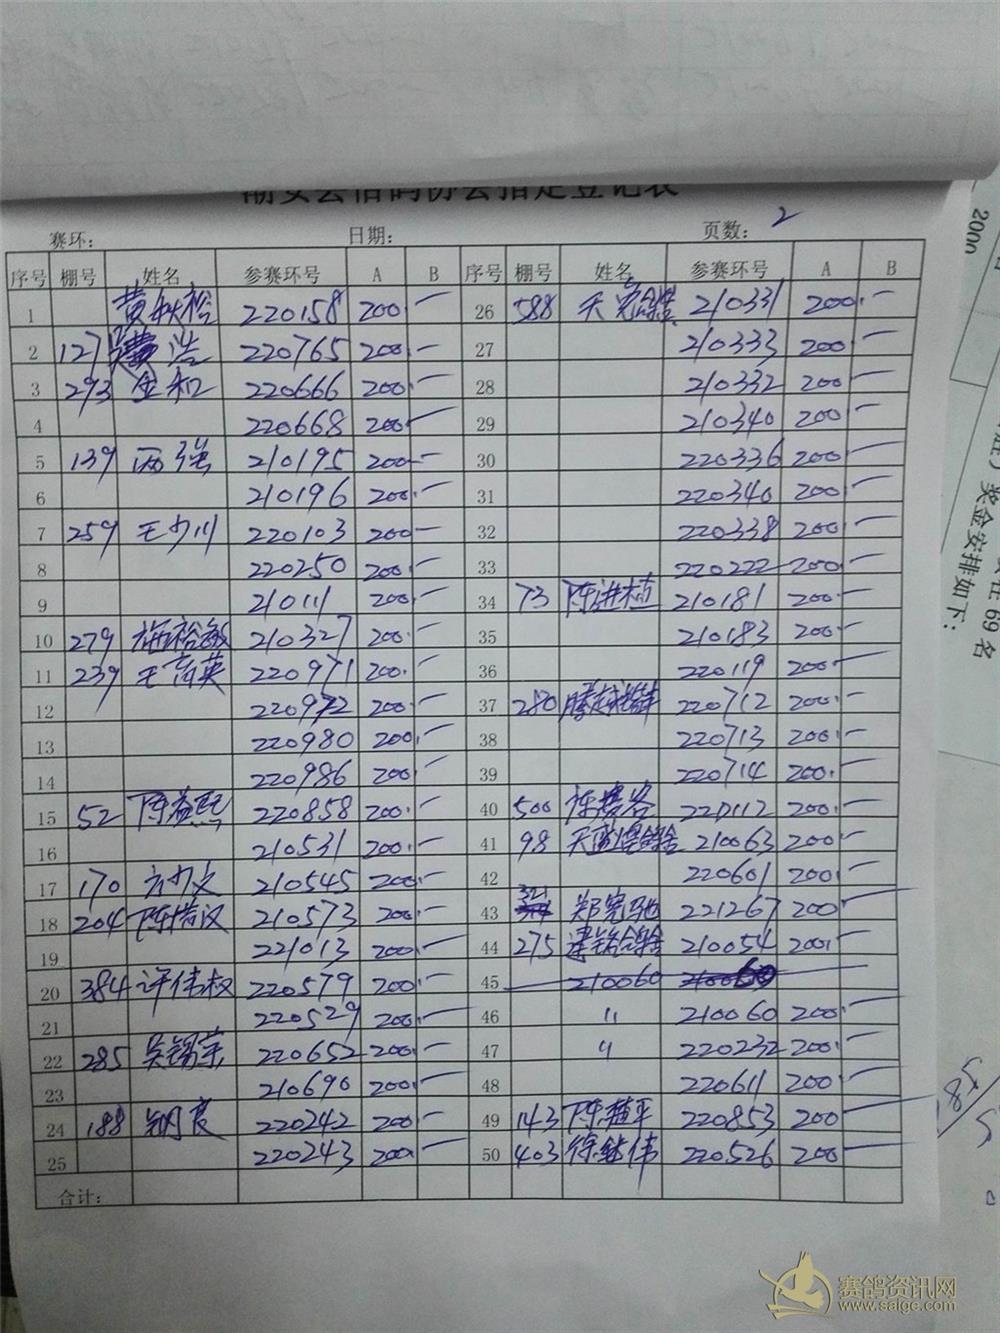 协会指定登记表
赛环： 日期： 页数：2
序号 棚号 姓名 参赛环号 A B 序号 棚号 姓名 参赛环号 A B
1 黄秋松 220158 200.一 26 588 天 210331 200.一
2 127 浩 220765 200.一 27 210333 200一
3 293 金和 220666 200一 28 210332 200一
4 220668 200一 29 210340 200一
5 139 丙强 210195 200一 30 220336 200一
6 210196 200.一 31 220340 200一
7 259 王少川 220103 200一 32 220338 200一
8 220250 200一 33 220222 200一
9 210111 200.一 34 73 陈进植 210181 200一
10 279 裕敏 210327 200.一 35 210183 200.一
11 239 王高英 220971 200. 36 220119 200一
12 220972 200.一 37 280 220712 200.一
13 220980 200.一 38 220713 200.一
14 220986 200.一 39 220714 200.一
15 52 陈益熙 220858 200.一 40 500 220112 200.一
16 210531 200.一 41 98 天 210063 200一
17 170 方少文 210545 200一 42 220601 200一
18 204 陈楷汉 210573 200一 43 321 郑宪驰 221267 200一
19 221013 200.一 44 275 210054 200一
20 384 许伟权 220579 200.一 45 210060 210060
21 220529 200.一 46 〃 210060 200.一
22 285 吴锡荣 220652 200.一 47 〃 220232 200.一
23 210690 200.一 48 220611 200一
24 188 良 220242 200.一 49 143 陈植平 220853 200
25 220243 200一 50 403 徐继伟 220526 200一
合计：
2000
在69名
奖金安排如下：
赛鸽资讯网
www.saigc.com